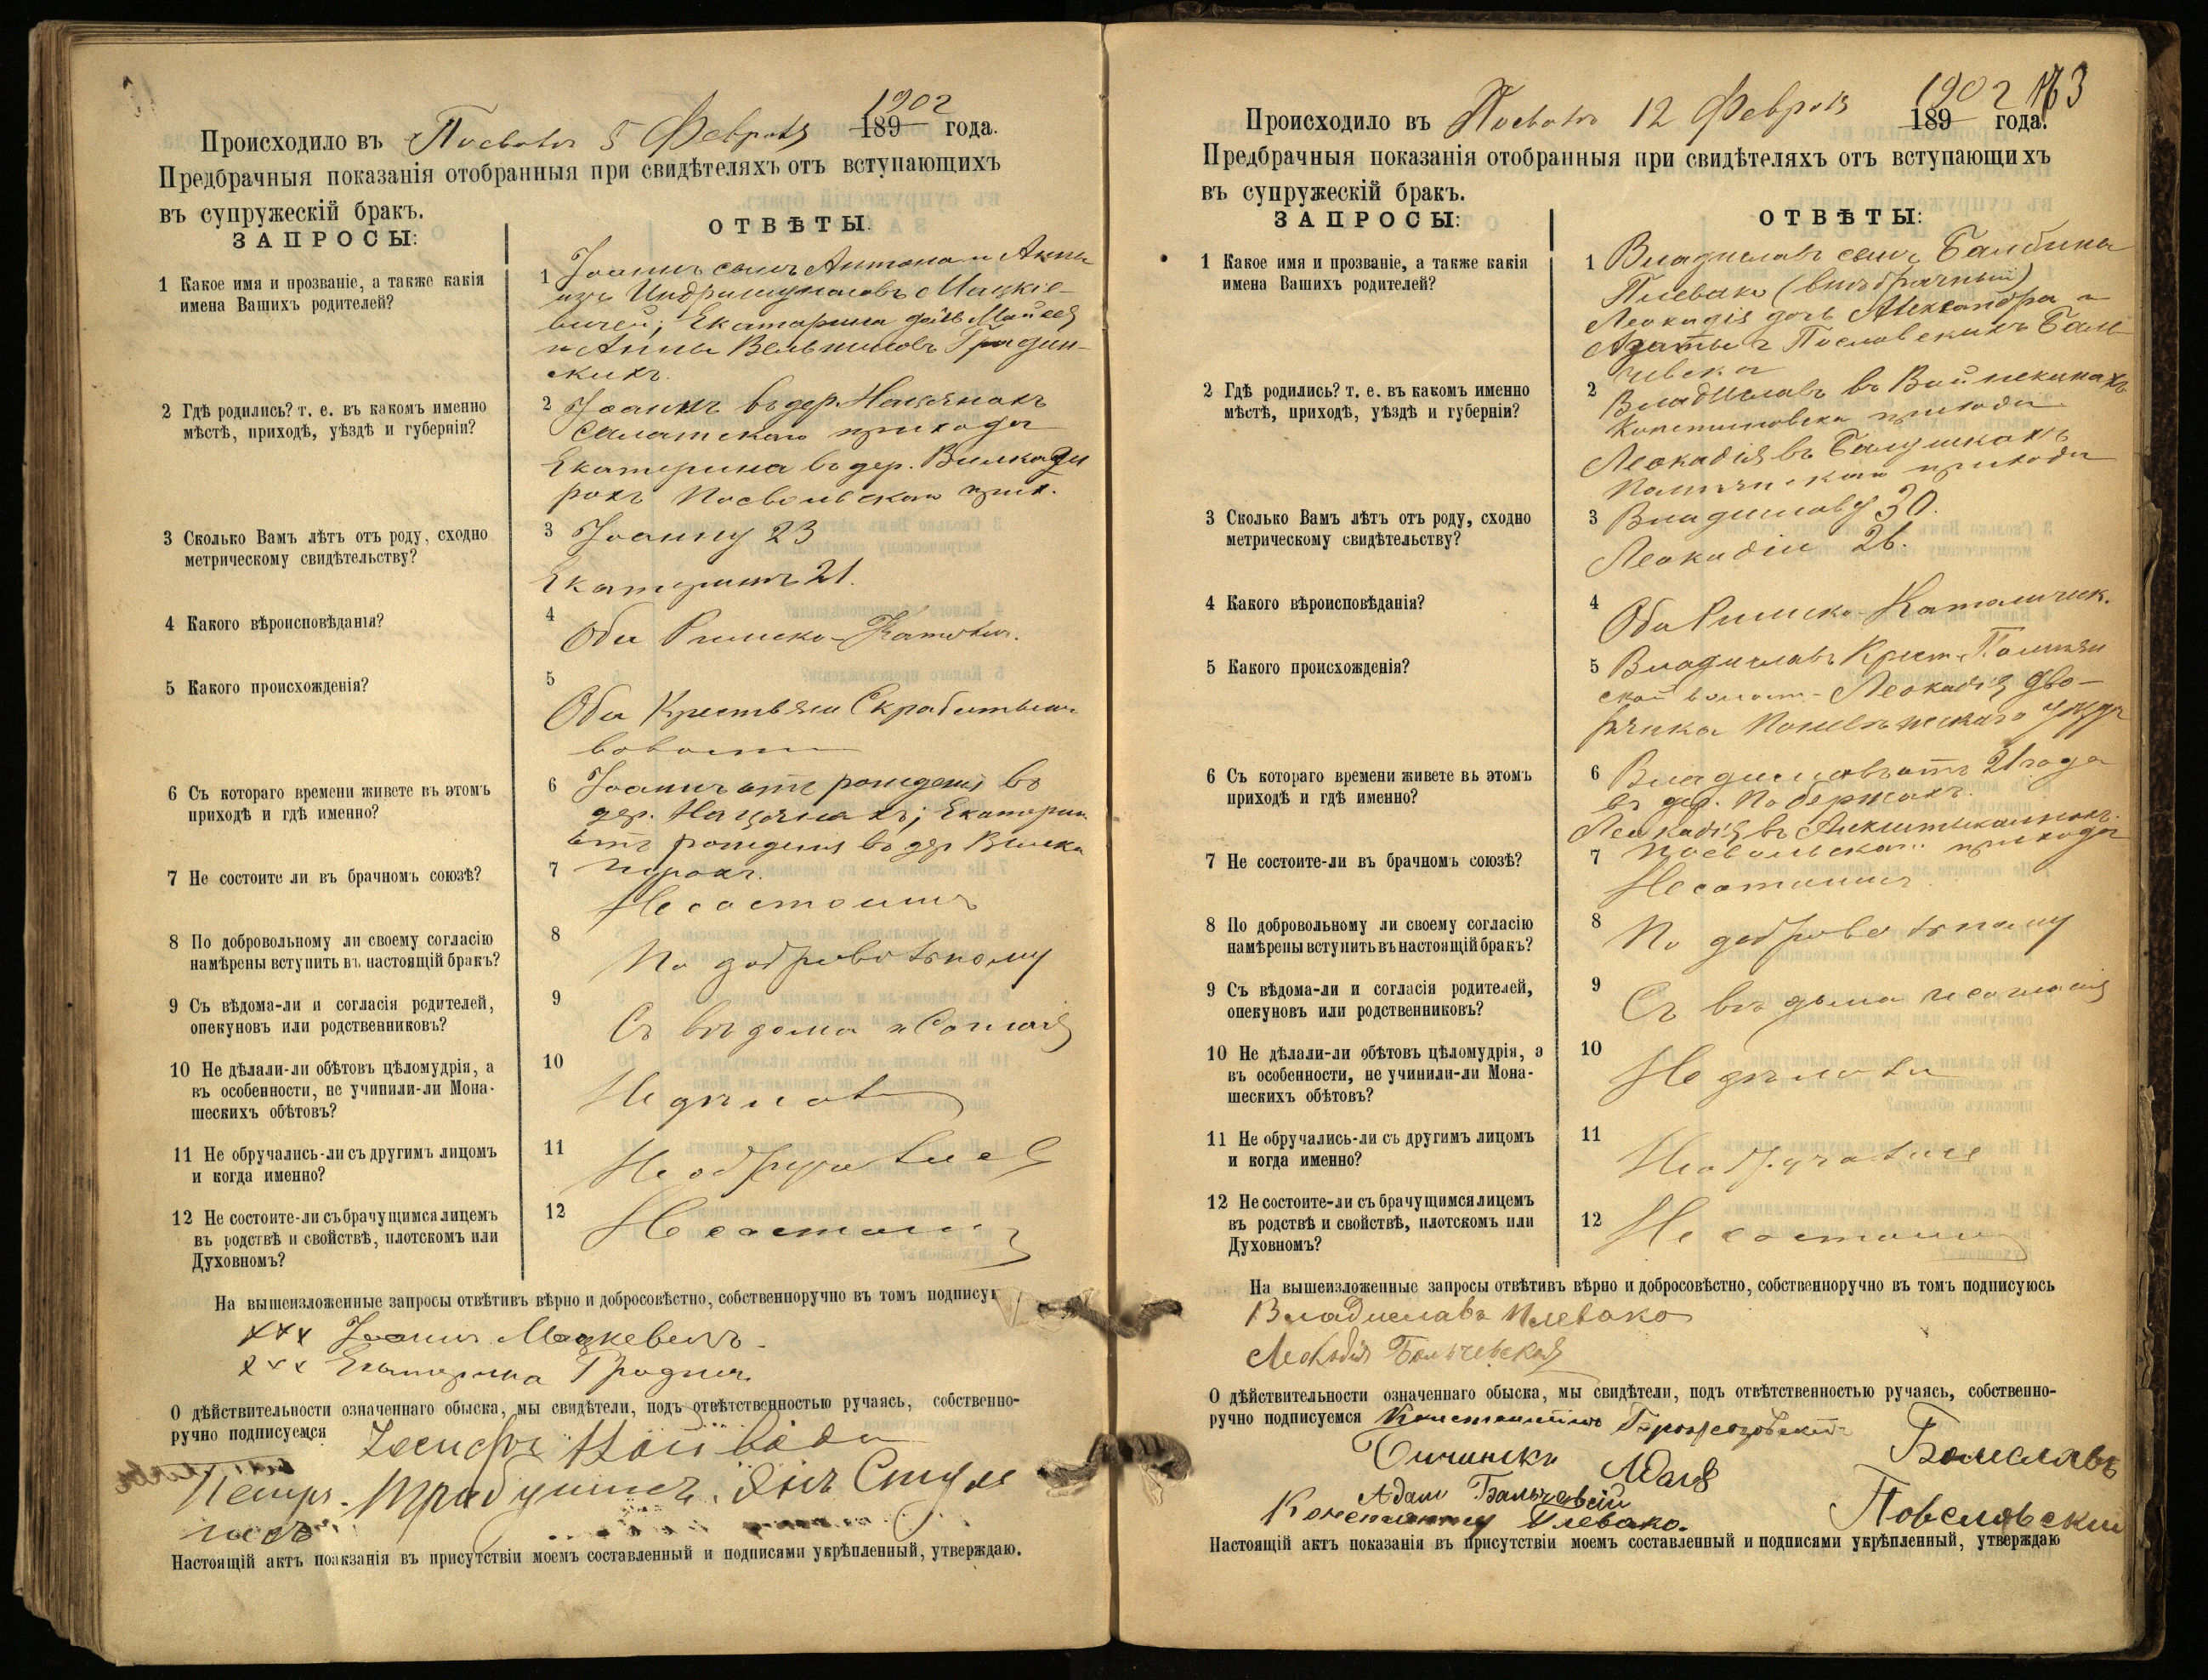 1902
Происходило въ Посволь 5 Февраля 189 года.
Предбрачныя показанія отобранныя при свидѣтеляхъ отъ вступающихъ
въ супружескій бракъ.
ЗАПРОСЫ:
ОТВѢТЫ:
1 Какое имя и прозваніе, а также какія
имена Вашихъ родителей?
1 Іоаннъ сынъ Антона и Анны
изъ Мацке-
вичей; Екатерина дочь
и Анны Градин-
скихъ.
2 Гдѣ родились? т. е. въ какомъ именно
мѣстѣ, приходѣ, уѣздѣ и губерніи?
2 Іоаннъ въ дер.
Салатскаго прихода
Екатерина въ дер.
Посвольскаго прих.
3 Сколько Вамъ лѣтъ отъ роду, сходно
метрическому свидѣтельству?
3 Іоанну 23
Екатеринѣ 21.
4 Какого вѣроисповѣданія?
4 Оба Римско-Католич.
5 Какого происхожденія?
5 Оба Крестьяне
волости
6 Съ котораго времени живете въ этомъ
приходѣ и гдѣ именно?
6 Іоаннъ отъ рожденія въ
дер. Екатерин
отъ рожденія въ дер
7 Не состоите ли въ брачномъ союзѣ?
7
Не состоимъ
8 По добровольному ли своему согласію
намѣрены вступить въ настоящій бракъ?
8 По добровольному
9 Съ вѣдома-ли и согласія родителей,
опекуновъ или родственниковъ?
9 Съ вѣдома и согласія
10 Не дѣлали-ли обѣтовъ цѣломудрія, а
въ особенности, не учинили-ли Мона-
шескихъ обѣтовъ?
10 Не дѣлали
11 Не обручались-ли съ другимъ лицомъ
и когда именно?
11 Не обручались
12 Не состоите-ли съ брачущимся лицемъ
въ родствѣ и свойствѣ, плотскомъ или
Духовномъ?
12 Не состоимъ
На вышеизложенные запросы отвѣтивъ вѣрно и добросовѣстно, собственноручно въ томъ подпису
ххх Іоаннъ Мацкевичъ
ххх Екатерина
О дѣйствительности означеннаго обыска, мы свидѣтели, подъ отвѣтственностью ручаясь, собственно-
ручно подписуемся
Петръ
Настоящій актъ поакзанія въ присутствіи моемъ составленный и подписями укрѣпленный, утверждаю.
1902 163
Происходило въ Посволь 12 Февраля 189 года.
Предбрачныя показанія отобранныя при свидѣтеляхъ отъ вступающихъ
въ супружескій бракъ.
ЗАПРОСЫ:
ОТВѢТЫ:
1 Какое имя и прозваніе, а также какія
имена Вашихъ родителей?
1 Владиславъ сынъ Бальбины
Плевако (внѣбрачный)
Леокадія дочь Александра и
Агаты
2 Гдѣ родились? т. е. въ какомъ именно
мѣстѣ, приходѣ, уѣздѣ и губерніи?
2 Владиславъ въ
прихода
Леокадія въ
прихода
3 Сколько Вамъ лѣтъ отъ роду, сходно
метрическому свидѣтельству?
3 Владиславу 30.
Леокадіи 26.
4 Какого вѣроисповѣданія?
4 Оба Римско-Католическ.
5 Какого происхожденія?
5 Владиславъ Крест.
ской волости. Леокадія дво-
рянка Поневѣжскаго уѣзда
6 Съ котораго времени живете въ этомъ
приходѣ и гдѣ именно?
6 Владиславъ отъ года
въ дер.
Леокадія въ
7 Не состоите-ли въ брачномъ союзѣ?
7 Посвольскаго прихода
Не состоимъ
8 По добровольному ли своему согласію
намѣрены вступить въ настоящій бракъ?
8 По добровольному
9 Съ вѣдома-ли и согласія родителей,
опекуновъ или родственниковъ?
9 Съ вѣдома и согласія
10 Не дѣлали-ли обѣтовъ цѣломудрія, а
въ особенности, не учинили-ли Мона-
шескихъ обѣтовъ?
10 Не дѣлали
11 Не обручались-ли съ другимъ лицомъ
и когда именно?
11 Не обручались
12 Не состоите-ли съ брачущимся лицемъ
въ родствѣ и свойствѣ, плотскомъ или
Духовномъ?
12 Не состоимъ
На вышеизложенные запросы отвѣтивъ вѣрно и добросовѣстно, собственноручно въ томъ подписуюсь
Владиславъ Плевако
Леокадія Бальчевская
О дѣйствительности означеннаго обыска, мы свидѣтели, подъ отвѣтственностью ручаясь, собственно-
ручно подписуемся Константинъ
Болеславъ
Адамъ Бальчевскій
Константинъ Плевако.
Настоящій актъ показанія въ присутствіи моемъ составленный и подписями укрѣпленный, утверждаю